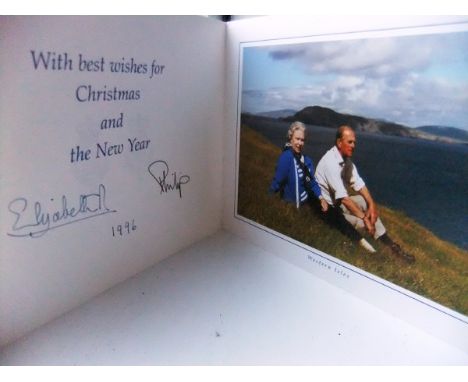 With best wishes for
Christmas
and
the New Year
Elizabeth R
Philip
1996
Western Isles